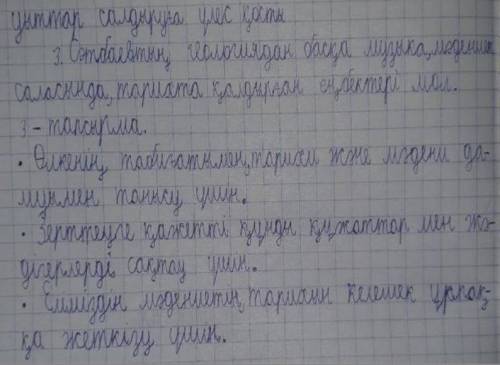 ұыттар салдыруға үлес қосты
3. Сәтбаевтың геологиядан басқа музыка, мәдениет
саласында, тарихта қалдырған еңбектері мол.
3 - тапсырма.
• Өлкенің табиғатымен, тарихи және мәдени да-
муымен танысу үшін.
• Зерттеуге қажетті құнды құжаттар мен жә-
дігерлерді сақтау үшін.
• Еліміздің мәдениетін, тарихын келешек ұрпақ-
қа жеткізу үшін.